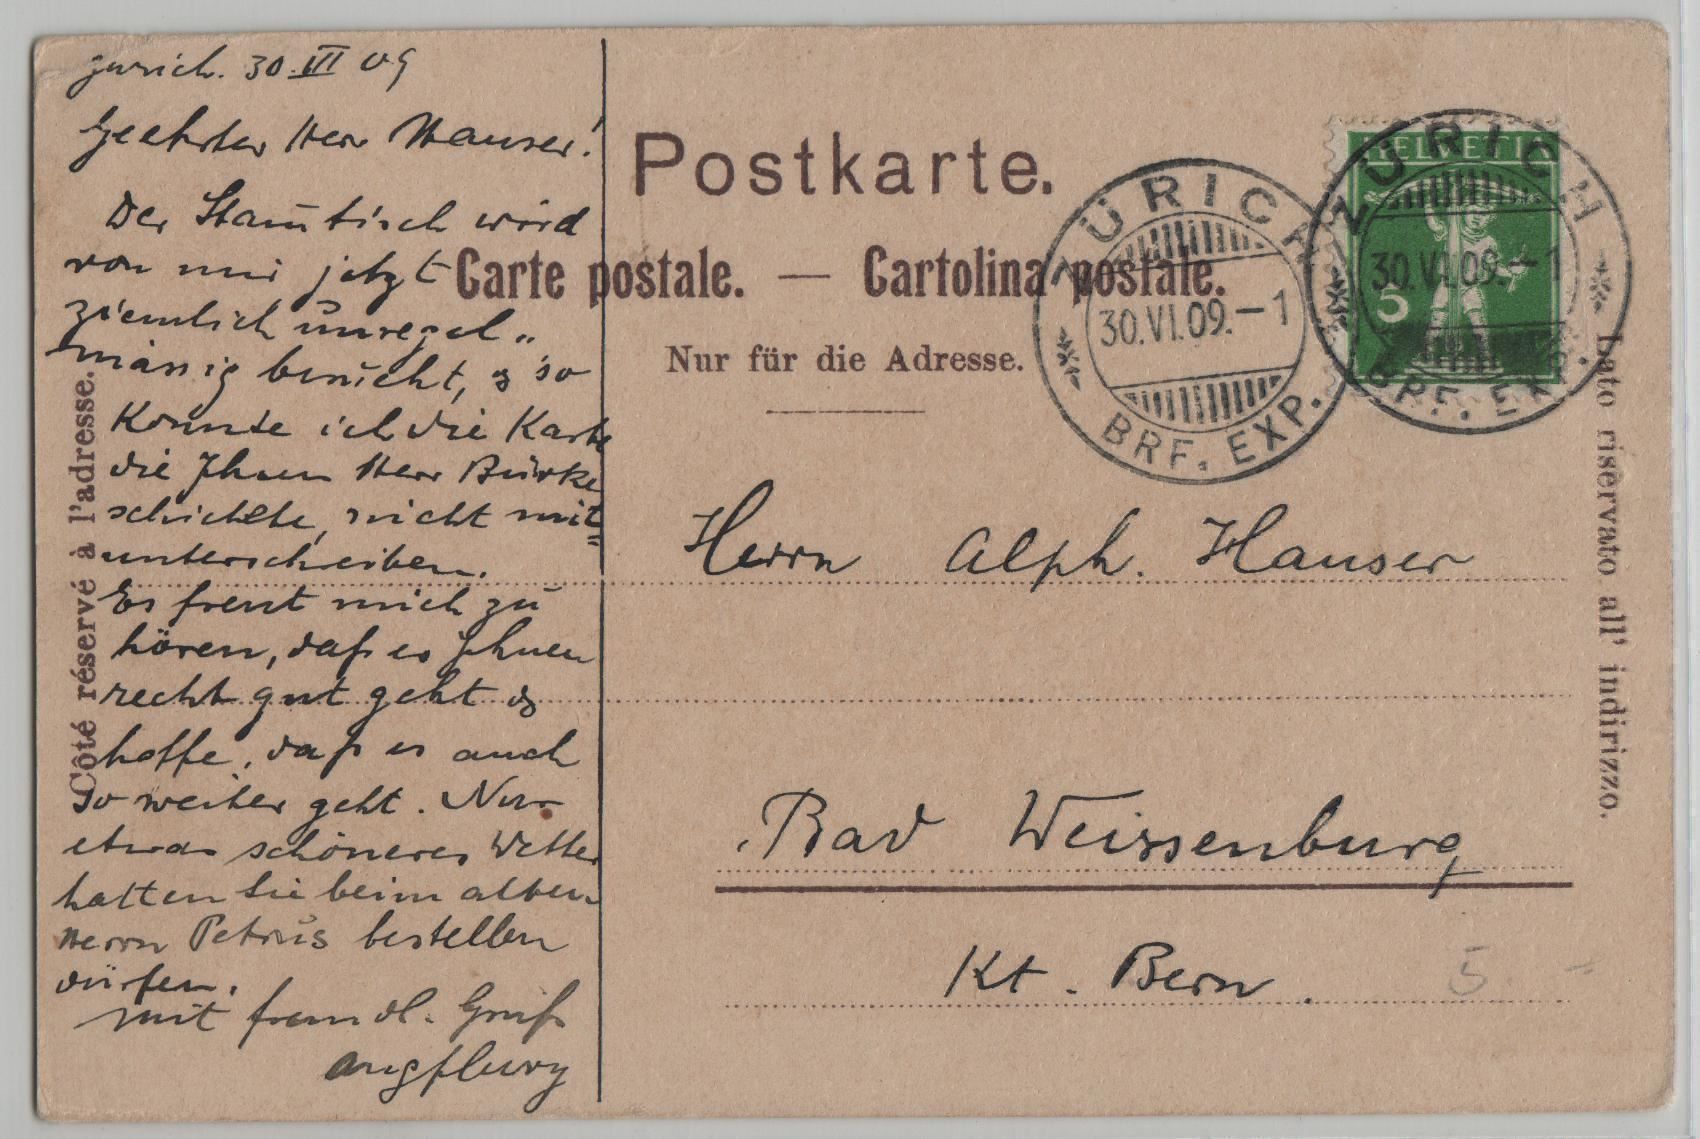 Zürich. 30. III 09
Geehrter Herr Hauser!
Der Stam̄tisch wird
von mir jetzt
ziemlich unregel„
mässig besucht, & so
konnte ich die Karte
die Ihnen Herr Bürke
schickte, nicht mit=
unterschreiben.
Es freut mich zu
hören, daß es Ihnen
recht gut geht &
hoffe, daß es auch
so weiter geht. Nur
etwas schöneres Wetter
hätten Sie beim alten
Herrn Petrus bestellen
dürfen.
Mit freundl. Gruß
Postkarte.
Carte postale. — Cartolina postale.
Nur für die Adresse.
Côté réservé à l'adresse.
Lato riservato all' indirizzo.
ZÜRICH
30.VI.09.–1
BRF. EXP.
HELVETIA
5
ZÜRICH
30.VI.09.–1
BRF. EXP.
Herrn Alph. Hauser
Bad Weissenburg
Kt. Bern.
5